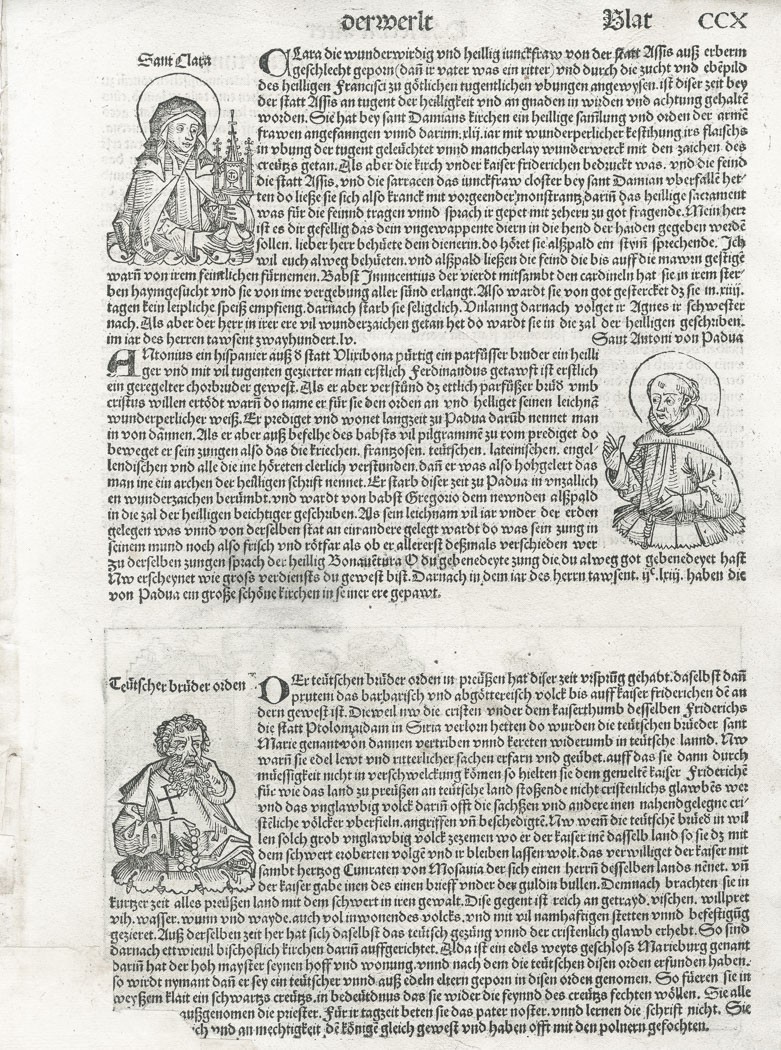 der werlt Blat CCX
Sant Clara
CLara die wunderwirdig vnd heillig iunckfraw von der statt Assis auß erberm
geschlecht geporn (dañ ir vater was ein ritter) vnd durch die zucht vnd ebēpild
des heilligen Francisci zu götlichen tugentlichen vbungen angewysen. ist diser zeit bey
der statt Assis an tugent der heilligkeit vnd an gnaden in wirden vnd achtung gehaltē
worden. Sie hat bey sant Damians kirchen ein heillige samlung vnd orden der armē
frawen angefanngen vnnd darinn .xlij. iar mit wunderperlicher kestihung irs flaischs
in vbung der tugent geleuchtet vnnd mancherlay wunderwerck mit den zaichen des
creützs getan. Als aber die kirch vnder kaiser friderichen bedruckt was. vnd die feind
die statt Assis. vnd die sarracen das iunckfraw closter bey sant Damian vberfallē het-
ten do ließe sie sich also kranck mit vorgeender monstrantz darin̄ das heillige sacrament
was für die feinnd tragen vnnd sprach ir gepet mit zehern zu got fragende. Mein herr
ist es dir gefellig das dein vngewappente diern in die hend der haiden gegeben werdē
sollen. lieber herr behüete dein dienerin. do höret sie alßpald ein stym̄ sprechende. Ich
wil euch alweg behüeten. vnd alßpald ließen die feind die bis auff die mawrn gestige
warn̄ von irem feintlichen fürnemen. Babst Innocentius der vierdt mitsambt den cardineln hat sie in irem ster-
ben haymgesucht vnd sie von ime vergebung aller sünd erlangt. Also wardt sie von got gestercket dz sie in .xiiij.
tagen kein leipliche speiß empfieng. darnach starb sie seligclich. Vnlanng darnach volget ir Agnes ir schwester
nach. Als aber der herr in irer ere vil wunderzaichen getan het do wardt sie in die zal der heilligen geschriben.
im iar des herren tawsent zwayhundert. lv.
Sant Antoni von Padua
ANtonius ein hispanier auß d̄ statt Vlixibona pürtig ein parfüsser bruder ein heilli
ger vnd mit vil tugenten gezierter man erstlich Ferdinandus getawft ist erstlich
ein geregelter chorbruder gewest. Als er aber verstünd dz ettlich parfüßer brüd̄ vmb
cristus willen ertödt warn̄ do name er für sie den orden an vnd helliget seinen leichnā
wunderperlicher weiß. Er prediget vnd wonet langzeit zu Padua darūb nennet man
in von dannen. Als er aber auß befelhe des babsts vil pilgrammē zu rom prediget do
beweget er sein zungen also das die kriechen. franzosen. teütschen. lateinischen. engel-
lendischen vnd alle die ine höreten clerlich verstunden. dañ er was also hohgelert das
man ine ein archen der heilligen schrift nennet. Er starb diser zeit zu Padua in vnzallich
en wunderzaichen berümbt. vnd wardt von babst Gregorio dem newnden alßpald
in die zal der heilligen beichtiger geschriben. Als sein leichnam vil iar vnder der erden
gelegen was vnnd von derselben stat an ein andere gelegt wardt do was sein zung in
seinem mund noch also frisch vnd rötfar als ob er allererst deßmals verschieden wer
zu derselben zungen sprach der heillig Bonauētura O du gebenedeyte zung die du alweg got gebenedeyet hast
Nw erscheynet wie gross verdiensts du gewest bist. Darnach in dem iar des herrn tawsent. ijᶜ. lxiij. haben die
von Padua ein große schöne kirchen in seiner ere gepawt.
Teütscher brüder orden
DEr teütschen brüder orden in preüßen hat diser zeit vrsprūg gehabt. daselbst dan̄
pruteni das barbarisch vnd abgöttereisch volck bis auff kaiser friderichen dē an
dern gewest ist. Dieweil nw die cristen vnder dem kaiserthumb desselben Friderichs
die statt Ptolomaidam in Siria verlorn hetten do wurden die teütschen brüeder sant
Marie genant von dannen vertriben vnnd kereten widerumb in teütsche lannd. Nw
warn̄ sie edel lewt vnd ritterlicher sachen erfarn vnd geübet. auff das sie dann durch
müessigkeit nicht in verschwelckung kōmen so hielten sie dem gemeltē kaiser Friderichē
für wie das land zu preüßen an teütsche land stoßende nicht cristenlichs glawbēs wer
vnd das vnglawbig volck darin̄ offt die sachßen vnd andere inen nahendgelegne cri-
stēliche völcker vberfieln. angriffen vn̄ beschedigtē. Nw wem̄ die teütschē brüed̄ in wil
len solch grob vnglawbig volck zezemen wo er der kaiser inē dasselb land so sie dz mit
dem schwert eroberten volgē vnd ir bleiben lassen wolt. das verwilliget der kaiser mit
sambt hertzog Cunraten von Mosauia der sich einen herrn̄ desselben lands nēnet. vn̄
der kaiser gabe inen des einen brieff vnder der guldin bullen. Demnach brachten sie in
kurtzer zeit alles preüßen land mit dem schwert in iren gewalt. Dise gegent ist reich an getrayd. vischen. willpret
vih. wasser. wunn vnd wayde. auch vol inwonendes volcks. vnd mit vil namhaftigen stetten vnnd befestigūg
gezieret. Auß derselben zeit her hat sich daselbst das teütsch gezüng vnnd der cristenlich glawb erhebt. So sind
darnach ettwieuil bischoflich kirchen darin̄ auffgerichtet. Alda ist ein edels weyts geschloss Marieburg genant
darin̄ hat der hoh mayster seynen hoff vnd wonung. vnnd nach dem die teütschen disen orden erfunden haben.
so wirdt nymant dan̄ er sey ein teütscher vnnd auß edeln eltern geporn in disen orden genomen. So füeren sie in
weyßem klait ein schwartzs creützs. in bedeütdnus das sie wider die feynnd des creützs fechten wöllen. Sie alle
außgenomen die priester. Für ir tagzeit beten sie das pater noster. vnnd lernen die schrift nicht. Sie
vnd an mechtigkeit dē künige gleich gewest vnd haben offt mit den polnern gefochten.